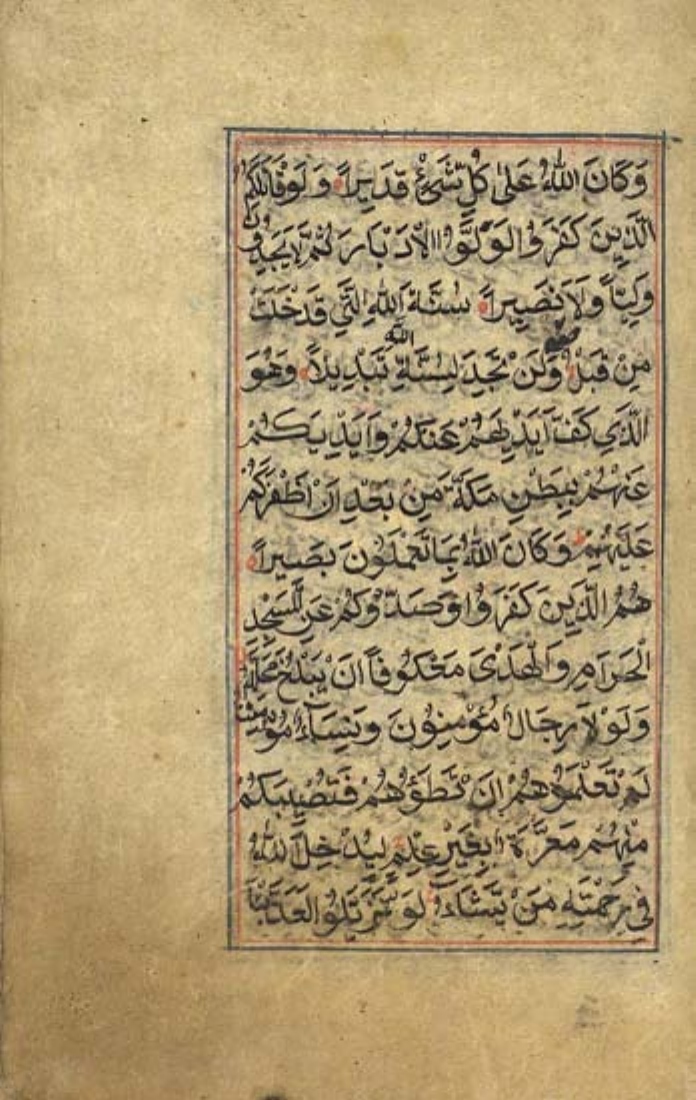 وَكَانَ اللهُ عَلىٰ كُلِّ شَيْءٍ قَدِيراً وَلَوْ قَاتَلَكُمُ
الَّذِينَ كَفَرُوا لَوَلَّوُا الْاَدْبَارَ ثُمَّ لَا يَجِدُونَ
وَلِيّاً وَلَا نَصِيراً سُنَّةَ اللهِ الَّتِي قَدْ خَلَتْ
مِنْ قَبْلُ وَلَنْ تَجِدَ لِسُنَّةِ اللهِ تَبْدِيلاً وَهُوَ
الَّذِي كَفَّ اَيْدِيَهُمْ عَنْكُمْ وَاَيْدِيَكُمْ
عَنْهُمْ بِبَطْنِ مَكَّةَ مِنْ بَعْدِ اَنْ اَظْفَرَكُمْ
عَلَيْهِمْ وَكَانَ اللهُ بِمَا تَعْمَلُونَ بَصِيراً
هُمُ الَّذِينَ كَفَرُوا وَصَدُّوكُمْ عَنِ الْمَسْجِدِ
الْحَرَامِ وَالْهَدْىَ مَعْكُوفاً اَنْ يَبْلُغَ مَحِلَّهُ
وَلَوْلَا رِجَالٌ مُؤْمِنُونَ وَنِسَاءٌ مُؤْمِنَاتٌ
لَمْ تَعْلَمُوهُمْ اَنْ تَطَؤُهُمْ فَتُصِيبَكُمْ
مِنْهُمْ مَعَرَّةٌ بِغَيْرِ عِلْمٍ لِيُدْخِلَ اللهُ
فِي رَحْمَتِهِ مَنْ يَشَاءُ لَوْ تَزَيَّلُوا لَعَذَّبْنَا